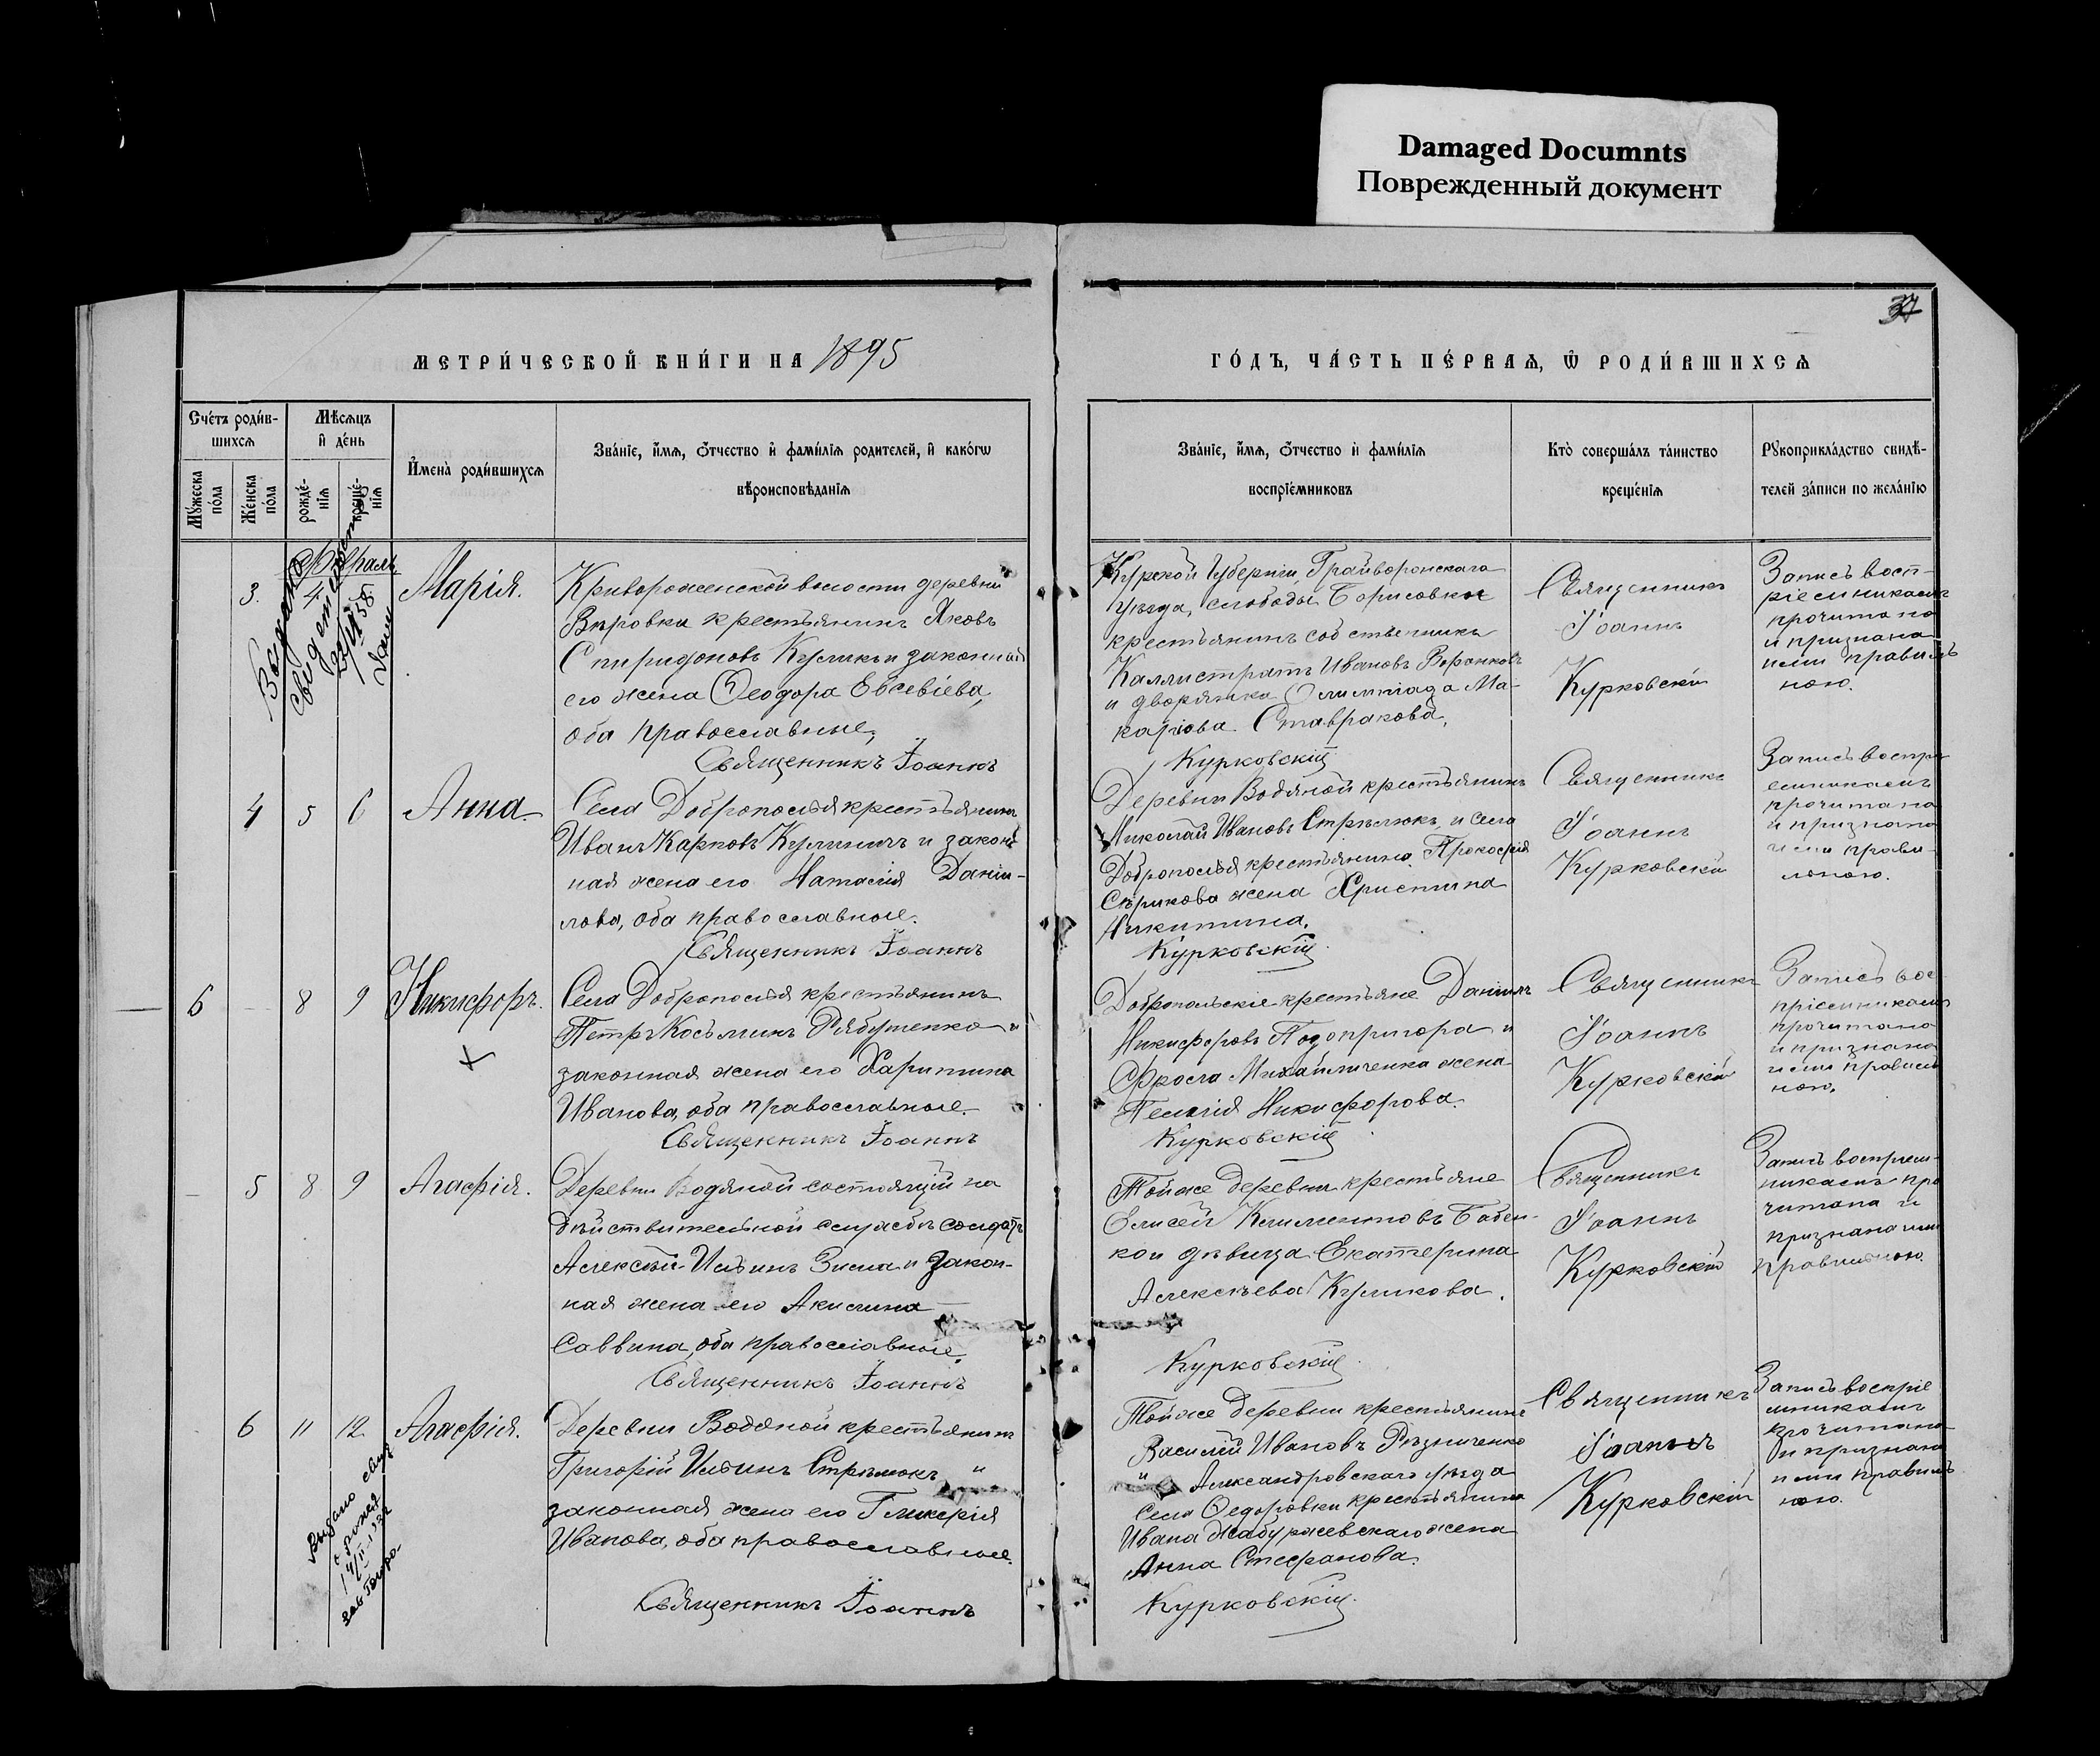 Damaged Documnts
Поврежденный документ
37
МЕТРИ́ЧЕСКОЙ КНИ́ГИ НА 1895
ГО́ДЪ, ЧА́СТЬ ПЕ́РВАѦ, Ѡ РОДИ́ВШИХСѦ
Сче́тъ роди́в-
шихсѧ
Му́жеска
по́ла
Же́нска
по́ла
Мѣ́сѧцъ
и де́нь
рожде́-
нїѧ
креще́-
нїѧ
И҆мена̀ роди́вшихсѧ
Зва́нїе, и҆́мѧ, ѻ҆́тчество и҆ фами́лїѧ роди́телей, и҆ како́гѡ
вѣроисповѣ́данїѧ
Зва́нїе, и҆́мѧ, ѻ҆́тчество и҆ фами́лїѧ
воспрїе́мниковъ
Кто̀ соверша́лъ та́инство
креще́нїѧ
Рꙋкоприкла́дство свидѣ́-
телей за́писи по жела́нїю
Февраль
3.
4
Марія.
Криворожской волости деревни
Вировки крестьянинъ Яковъ
Спиридоновъ Куликъ и законная
его жена Ѳеодора Евсевіева,
оба православные,
Священникъ Іоаннъ
Курской губерніи, Грайворонскаго
уѣзда, слободы Борисовки
крестьянинъ собственникъ
Каллистратъ Ивановъ Воронковъ
и дворянка Олимпіада Ма-
каріова Ставракова,
Курковскій
Священникъ
Іоаннъ
Курковскій
Запись восп-
ріемникамъ
прочитана
и признана
ими правиль
ною.
4 5 6
Анна.
Села Доброполья крестьянинъ
Иванъ Карповъ Куличъ и закон-
ная жена его Наталія Даніи-
лова, оба православные.
Священникъ Іоаннъ
Деревни Водяной крестьянинъ
Николай Ивановъ Стрѣлюкъ, и села
Доброполья крестьянина Прокофія
Сѣрикова жена Христина
Никитина.
Курковскій
Священникъ
Іоаннъ
Курковскій
Запись воспрі
емникамъ
прочитана
и признана
ими прави-
льною.
6 8 9
Никифоръ.
Села Доброполья крестьянинъ
Петръ Косьминъ Рябушенко и
законная жена его Харитина
Иванова, оба православные.
Священникъ Іоаннъ
Добропольскіе крестьяне Даніилъ
Никифоровъ Подопригора и
Фрола Михайличенка жена
Пелагія Никифорова.
Курковскій
Священникъ
Іоаннъ
Курковскій
Запись вос-
пріемникамъ
прочитана
и признана
ими правиль
ною.
5 8 9
Агафія.
Деревни Водяной состоящій на
дѣйствительной службѣ солдатъ
Алексѣй Ильинъ Зима и закон-
ная жена его Акилина
Саввина, оба православные.
Священникъ Іоаннъ
Той же деревни крестьяне
Елисей Климентовъ Бабен-
ко и дѣвица Екатерина
Алексѣева Куликова.
Курковскій
Священникъ
Іоаннъ
Курковскій
Запись воспріем-
никамъ про
читана и
признана ими
правильною.
6 11 12
Агафія.
Деревни Водяной крестьянинъ
Григорій Ильинъ Стрѣлюкъ и
законная жена его Гликерія
Иванова, оба православные.
Священникъ Іоаннъ
Той же деревни крестьянинъ
Василій Ивановъ Рѣзниченко
и Александровскаго уѣзда
села Ѳедоровки крестьянина
Ивана Жабуржевскаго жена
Анна Стефанова.
Курковскій
Священникъ
Іоаннъ
Курковскій
Запись воспріе
мникамъ
прочитана
и признана
ими правиль
ною.